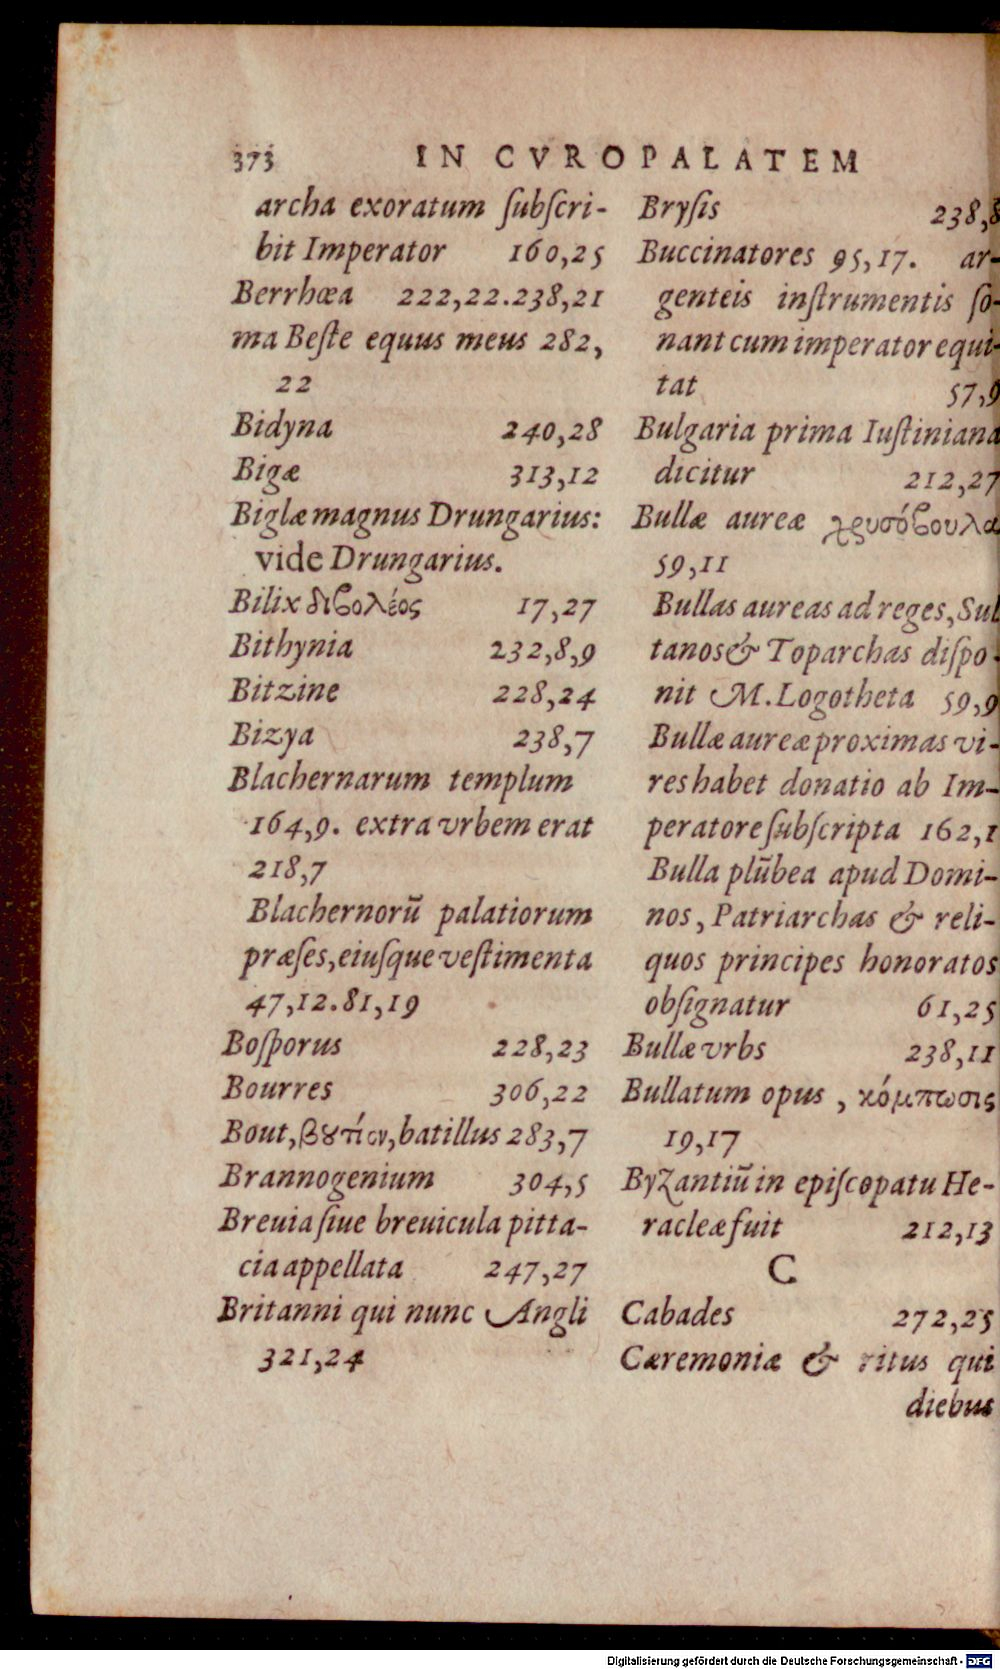 373 IN CVROPALATEM
archa exoratum ſubſcri-
bit Imperator 160,25
Berrhœa 222,22.238,21
ma Beſte equus meus 282,
22
Bidyna 240,28
Bigæ 313,12
Biglæ magnus Drungarius:
vide Drungarius.
Bilix διβολέος 17,27
Bithynia 232,8,9
Bitzine 228,24
Bizya 238,7
Blachernarum templum
164,9. extra vrbem erat
218,7
Blachernorū palatiorum
præſes, eiuſque veſtimenta
47,12.81,19
Boſporus 228,23
Bourres 306,22
Bout, βουτίον, batillus 283,7
Brannogenium 304,5
Breuia ſiue breuicula pitta-
cia appellata 247,27
Britanni qui nunc Angli
321,24
Bryſis 238,8
Buccinatores 95,17. ar-
genteis inſtrumentis ſo-
nant cum imperator equi-
tat 57,9
Bulgaria prima Iuſtiniana
dicitur 212,27
Bullæ aureæ χρυσόβουλα
59,11
Bullas aureas ad reges, Sul
tanos & Toparchas diſpo-
nit M. Logotheta 59,9
Bullæ aureæ proximas vi-
res habet donatio ab Im-
peratore ſubſcripta 162,1
Bulla plūbea apud Domi-
nos, Patriarchas & reli-
quos principes honoratos
obſignatur 61,25
Bullæ vrbs 238,11
Bullatum opus, κόμπωσις
19,17
Byzantiū in epiſcopatu He-
racleæ fuit 212,13
C
Cabades 272,25
Cæremoniæ & ritus qui
diebus
Digitalisierung gefördert durch die Deutsche Forschungsgemeinschaft - DFG